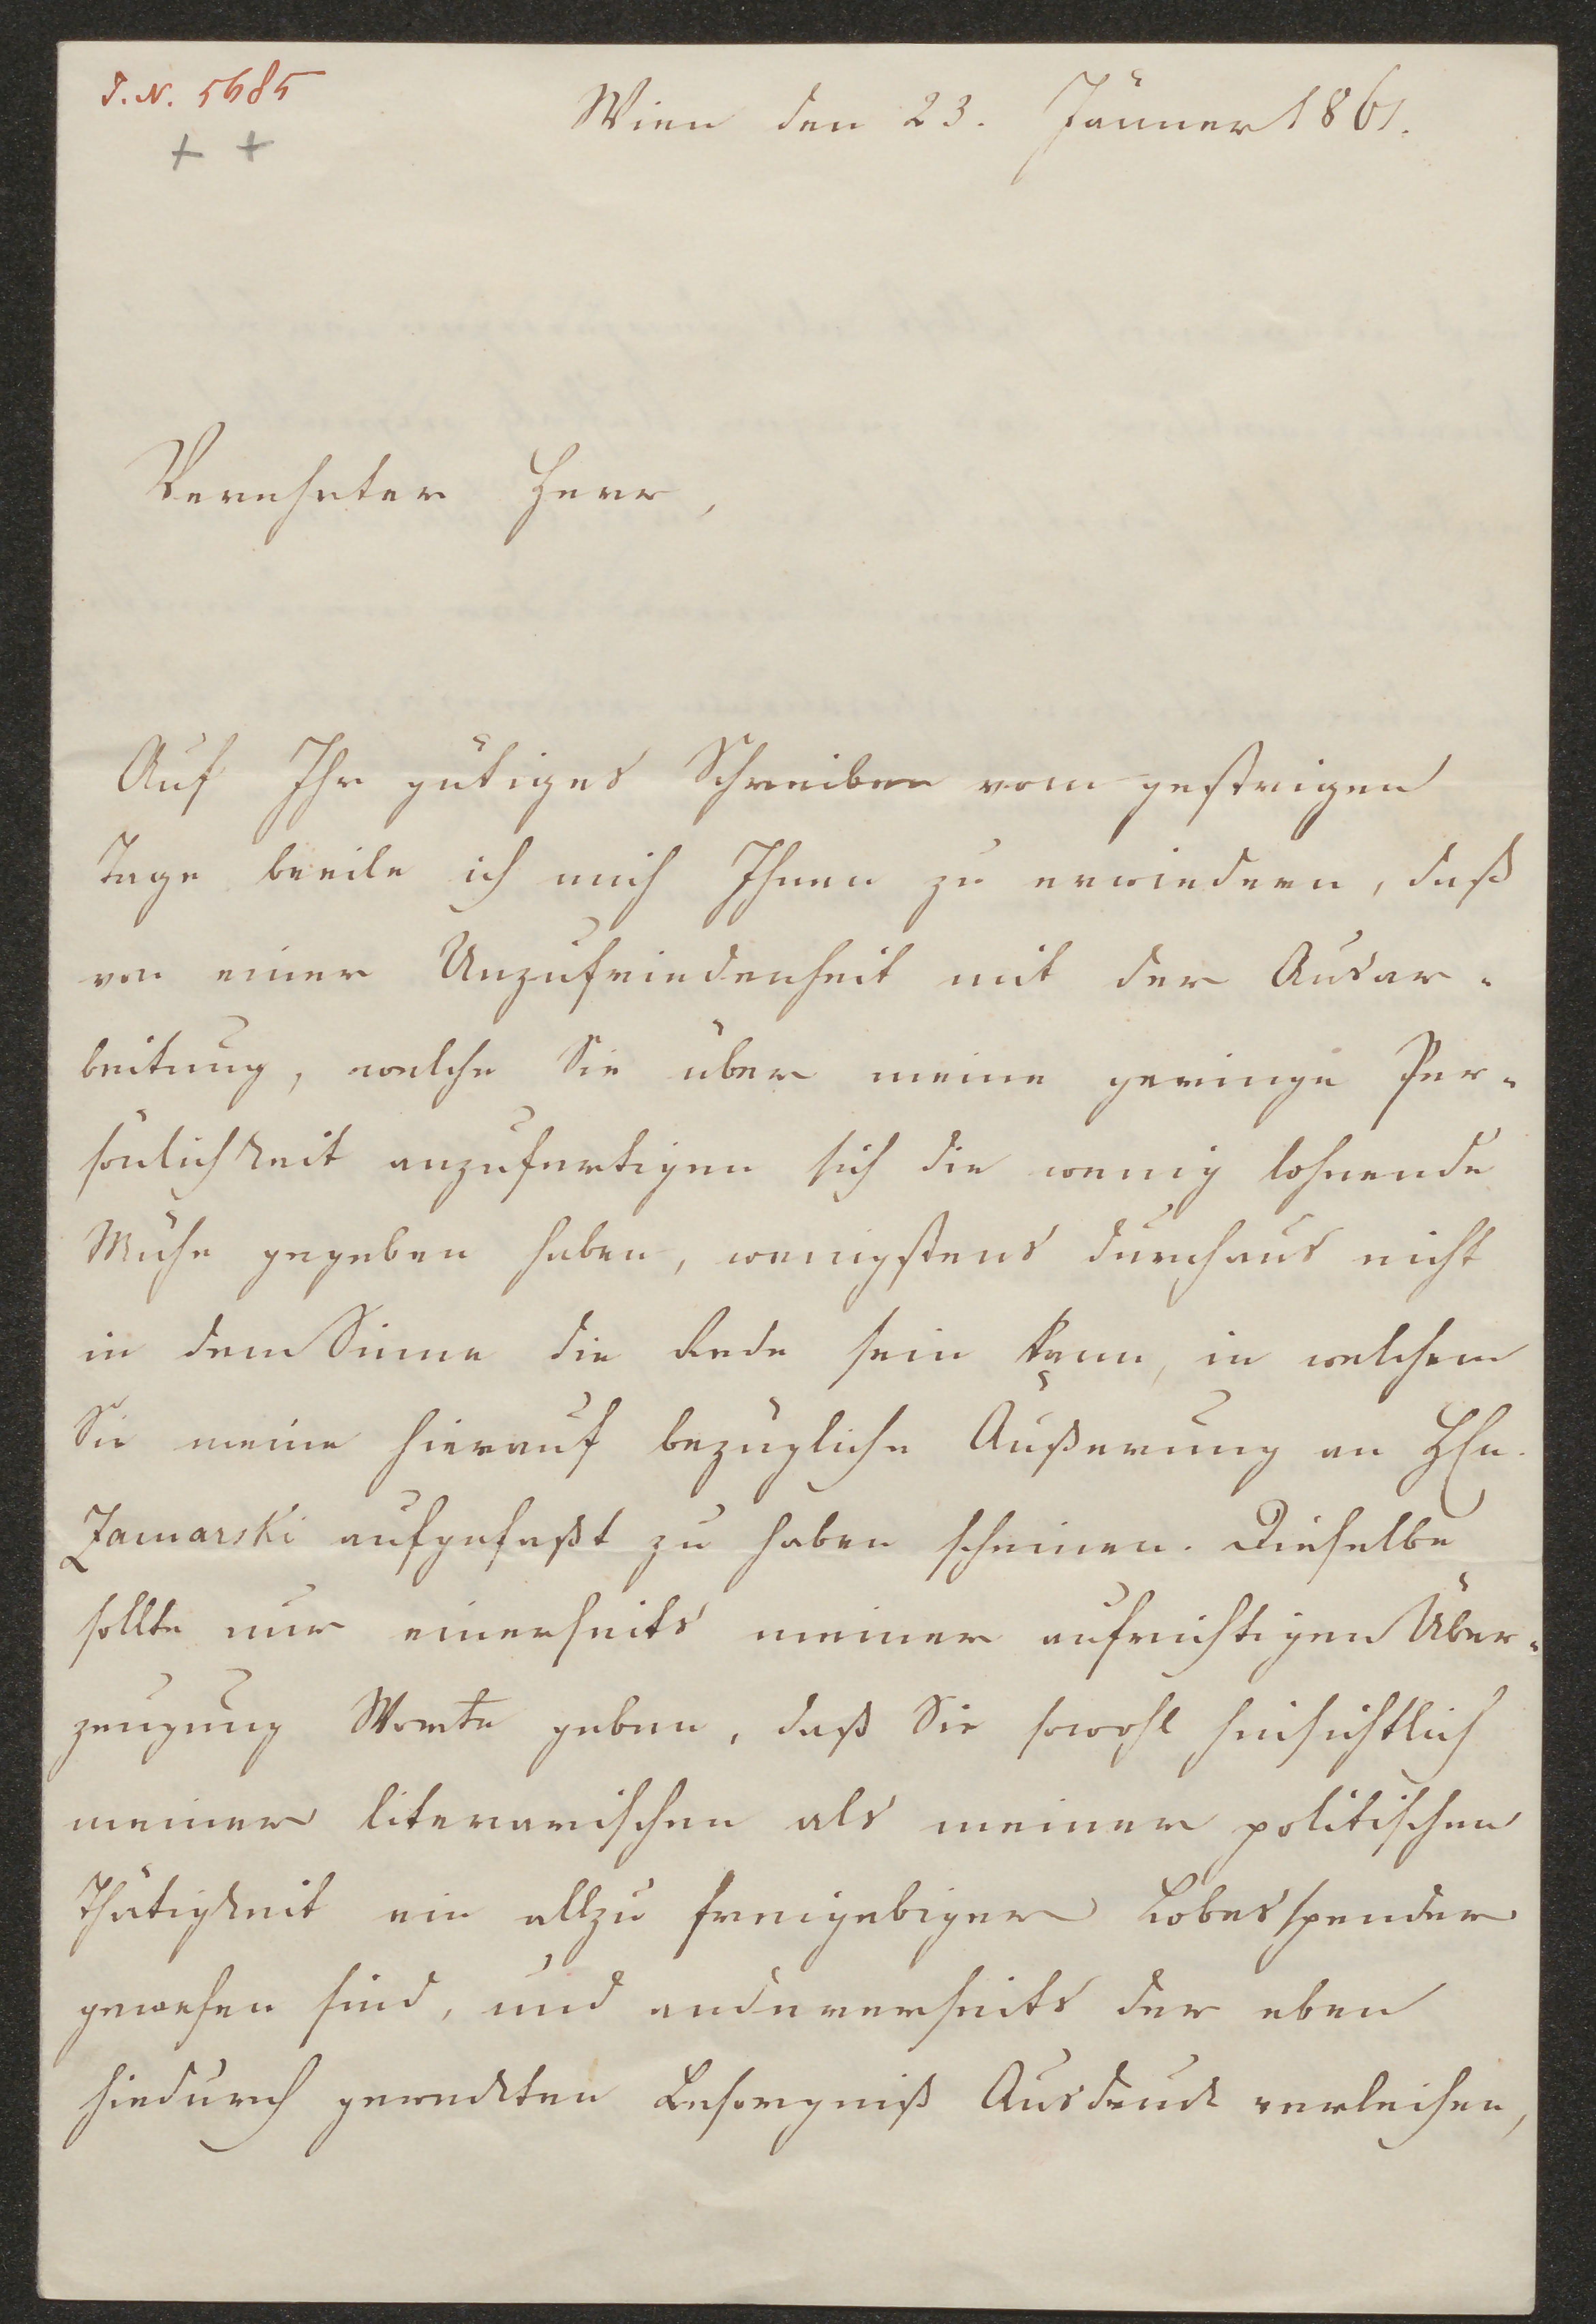 J. N. 5685
+ +
Wien den 23. Jänner 1861.
Verehrter Herr,
Auf Ihr gütiges Schreiben vom gestrigen
Tage beeile ich mich Ihnen zu erwiedern, daß
von einer Unzufriedenheit mit der Ausar-
beitung, welche Sie über meine geringe Per-
sönlichkeit anzufertigen sich die wenig lohnende
Mühe gegeben haben, wenigstens durchaus nicht
in dem Sinne die Rede sein kann, in welchem
Sie meine hierauf bezügliche Äußerung an Hrn.
Zamarski aufgefaßt zu haben scheinen. Dieselbe
sollte nur einerseits meiner aufrichtigen Über-
zeugung Worte geben, daß Sie sowohl hinsichtlich
meiner literarischen als meiner politischen
Thätigkeit ein allzu freigebiger Lobesspender
gewesen sind, und andererseits der eben
hiedurch geweckten Besorgniß Ausdruck verleihen,